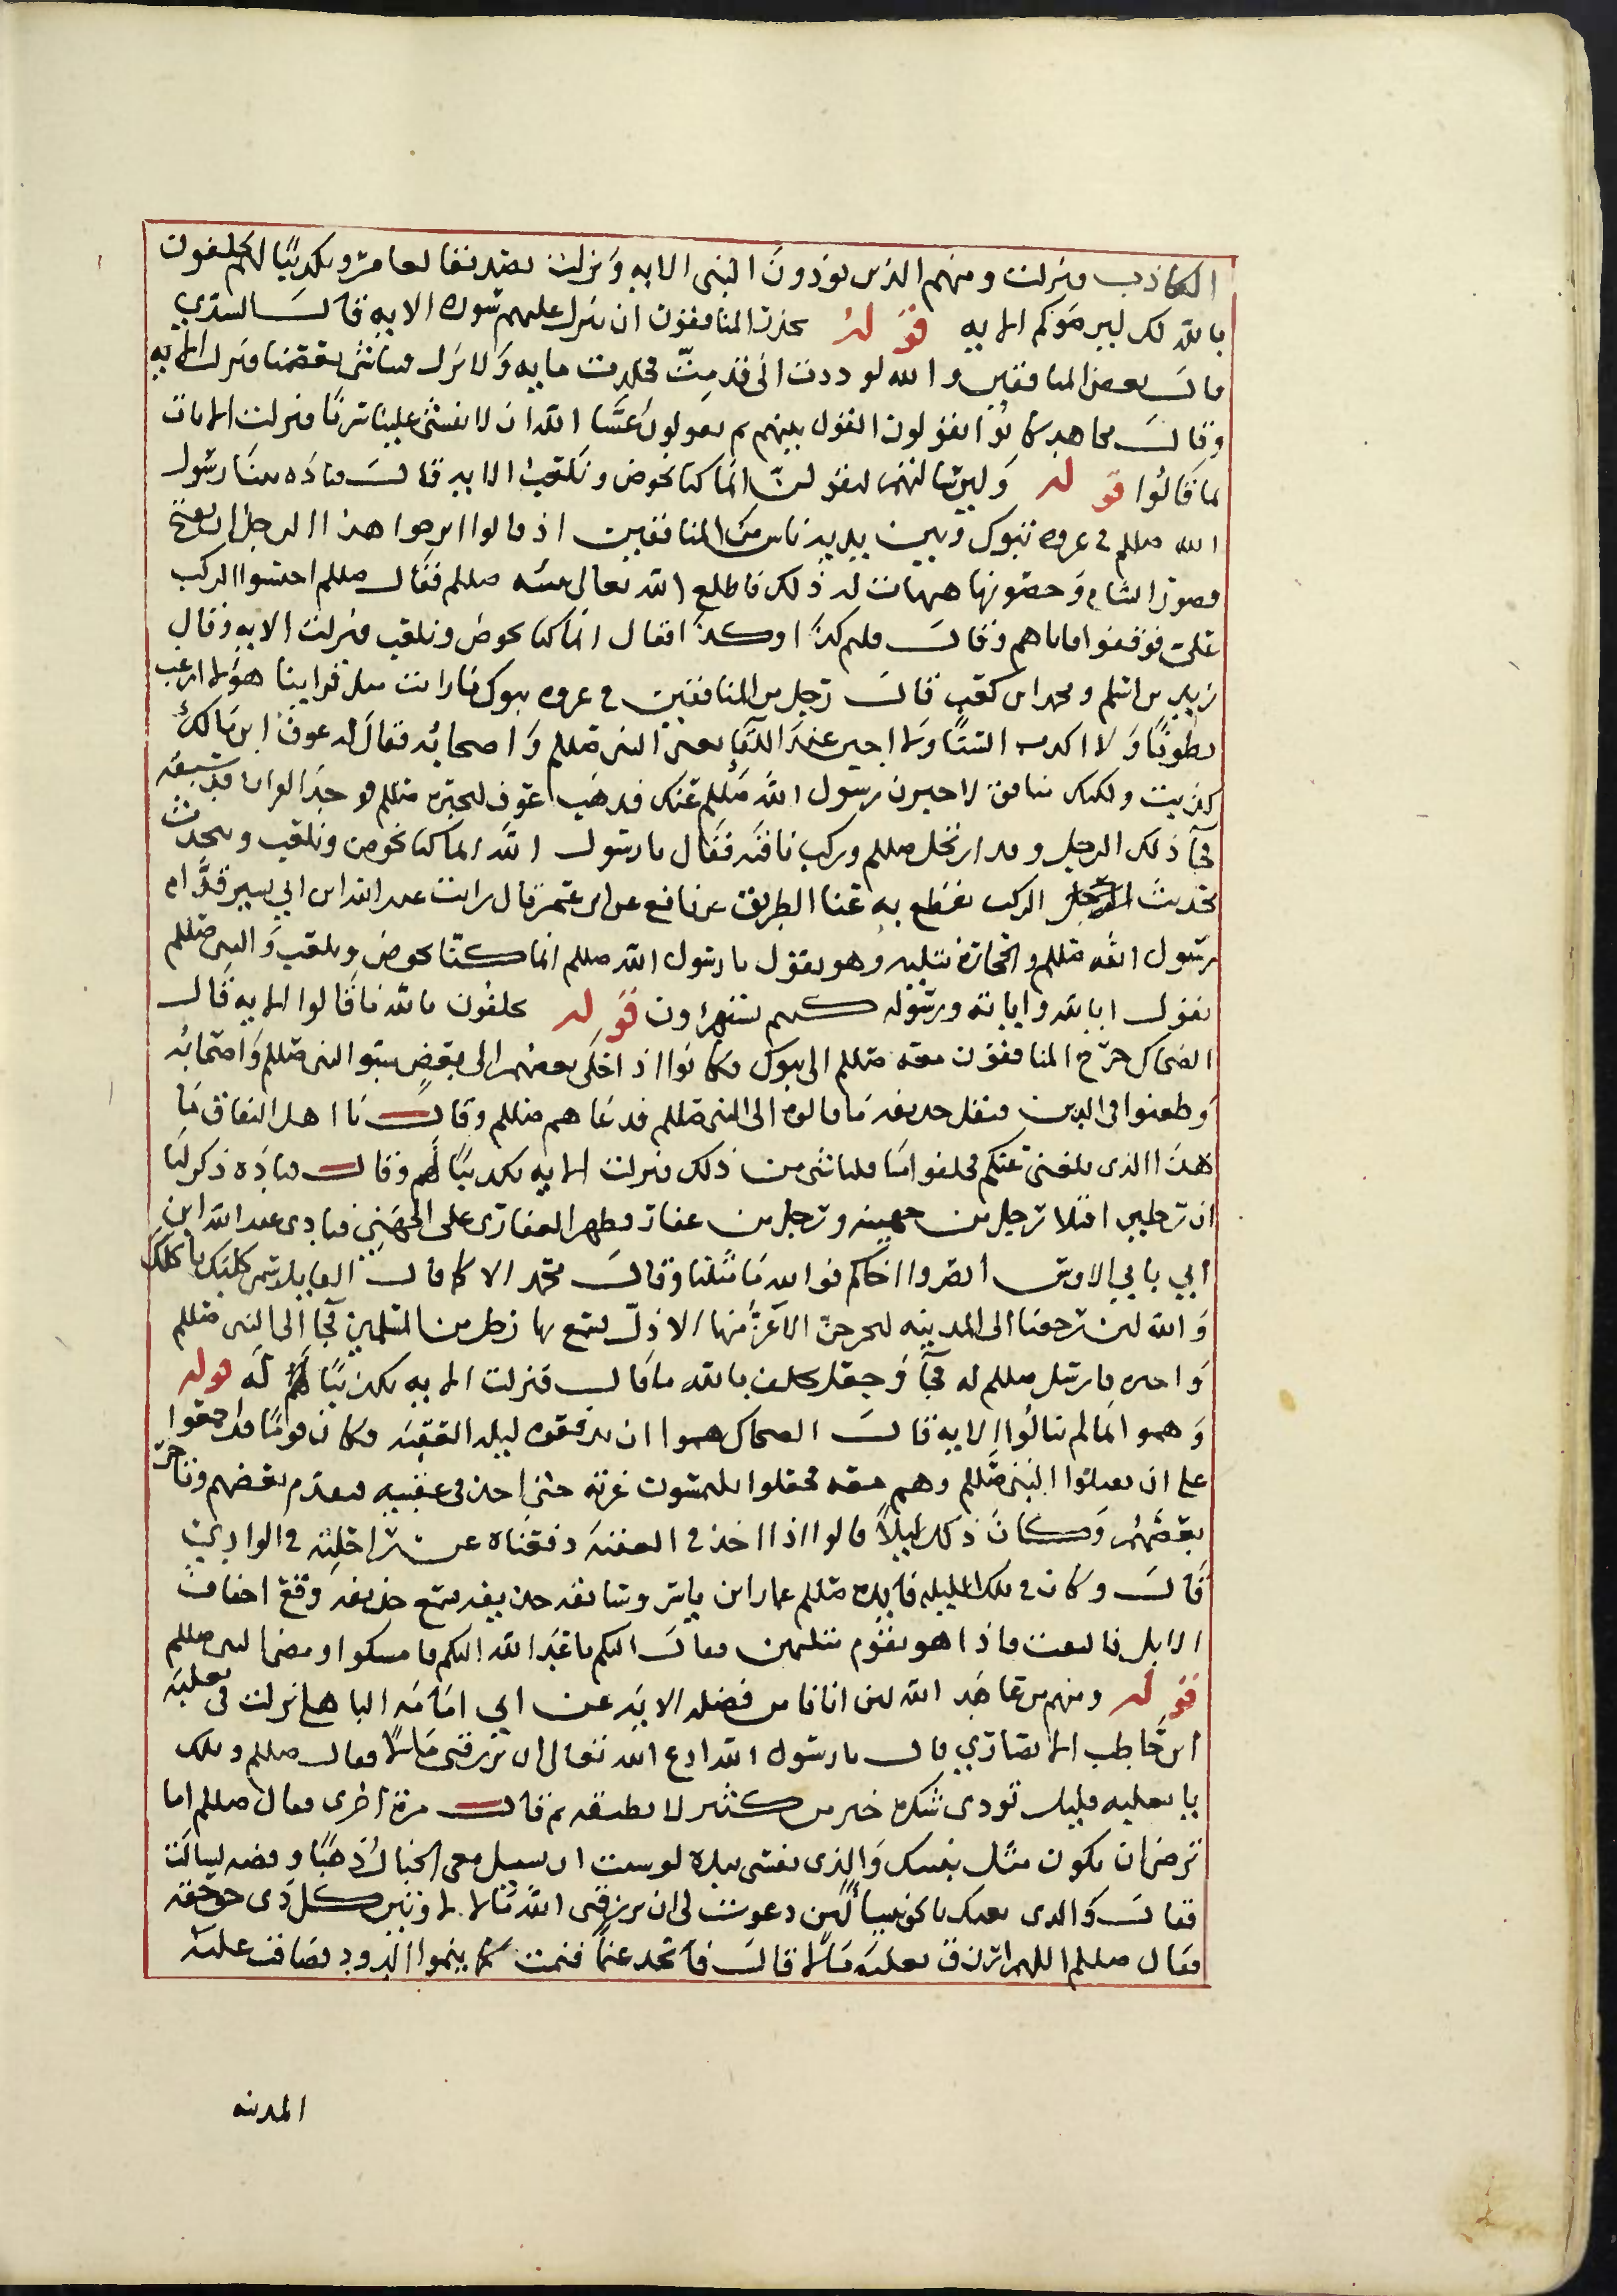 الكاذب فنزلت ومنهم الذين يوذون النبى الايه ونزلت تصديقا لعامر وتكذيبًا لهم يحلفون
بالله لكم ليرضوكم الايه قوله يحذر المنافقون ان تنزل عليهم سوره الايه قال السدي
قال بعض المنافقين والله لوددت انى قدمت فجلدت مايه ولا ينزل فينا شى يفضحنا فنزلت الايه
وقال مجاهد كانوا يقولون القول بينهم ثم يقولون عسا الله ان لا يفشى علينا سرنا فنزلت الايات
بما قالوا قوله ولين سالتهم ليقولن انما كنا نخوض ونلعب الايه قال قتاده بينا رسول
الله صللم في غزوه تبوك وبين يديه ناس من المنافقين اذ قالوا ايرجوا هذا الرجل ان يفتح
قصور الشام وحصونها هيهات له ذلك فاطلع الله تعالى نبيه صللم فقال صللم احبسوا الركب
على فوقفوا فاتاهم وقال قلتم كذا وكذا فقال انما كنا نخوض ونلعب فنزلت الايه وقال
زيد بن اسلم ومحمد ابن كعب قال رجل من المنافقين في غزوه تبوك ما رايت مثل قراينا هولا ارغب
بطونًا ولا اكذب السنًا ولا اجبن عند اللقا يعنى النبى صللم واصحابه فقال له عوف ابن مالك
كذبت ولكنك منافق لاخبرن رسول الله صللم عنك فذهب عوف ليخبره صللم فوجد القران قد سبقه
فجآ ذلك الرجل وقد ارتحل صللم وركب ناقته فقال يا رسول الله انما كنا نخوض ونلعب ونتحدث
بحديث الركب نقطع به عنا الطريق عن نافع عن ابن عمر قال رايت عبد الله ابن ابي يسير قدام
رسول الله صللم والحجاره تنكبه وهو يقول يا رسول الله صللم انما كنا نخوض ونلعب والنبى صللم
يقول ابالله واياته ورسوله كنتم تستهزاون قوله يحلفون بالله ما قالوا الايه قال
الضحاك خرج المنافقون معه صللم الى تبوك فكانوا اذ اخلى بعضهم الى بعض سبوا النبى صللم واصحابه
وطعنوا فى الدين فنقل حذيفه ما قالوه الى النبى صللم فدعاهم صللم وقال يا اهل النفاق ما
هذا الذى بلغنى عنكم فحلفوا ما قلنا شى من ذلك فنزلت الايه تكذيبًا لهم وقال قتاده ذكر لنا
ان رجلين اقتلا رجل من جهينه ورجل من غفار فظهر الغفارى على الجهنى فنادى عبد الله ابن
ابي يا بني الاوس انصروا اخاكم فوالله ما مثلنا وقال محمد الا كما قال القايل سمن كلبك ياكلك
والله لين رجعنا الى المدينه ليخرجن الاعز منها الاذل فسمع بها رجل من المسلمين فجا الى النبى صللم
واخبره فارسل صللم له فجآ وجعل يحلف بالله ما قال فنزلت الايه تكذيبًا له قوله
وهموا بما لم ينالوا الايه قال الضحاك هموا ان يدفعوه ليله العقبه وكان قومًا قد اجمعوا
على ان يقتلوا النبى صللم وهم معه فجعلوا يلتمسون غرته حتى اخذ فى عقبه فتقدم بعضهم وتاخر
بعضهم وكان ذلك ليلًا قالوا اذا اخذ في العقبه دفعناه عن راحلته في الوادي
قال وكان في تلك الليله قايده صللم عمار ابن ياسر وسايقه حذيفه فسمع حذيفه وقع اخفاف
الابل فالتفت فاذا هو بقوم متلثمين فقال اليكم يا اعدا الله اليكم فامسكوا ومضى النبى صللم
قوله ومنهم من عاهد الله لين اتانا من فضله الايه عن ابي امامه الباهلى نزلت في ثعلبه
ابن حاطب الانصاري قال يا رسول الله ادع الله تعالى ان يرزقنى مالًا فقال صللم ويلك
يا ثعلبه قليل تودى شكره خير من كثير لا تطيقه ثم قال مرة اخرى فقال صللم اما
ترضى ان تكون مثل نبيك والذى نفسى بيده لو سيت ان تسيل معى الجبال ذهبًا وفضه لسالت
فقال والذى بعثك بالحق نبيا لين دعوت لى ان يرزقنى الله مالا لاوتين كل ذى حق حقه
فقال صللم اللهم ارزق ثعلبه مالا قال فاتخذ غنمًا فنمت كما ينموا الدود فضاقت عليه
المدينه